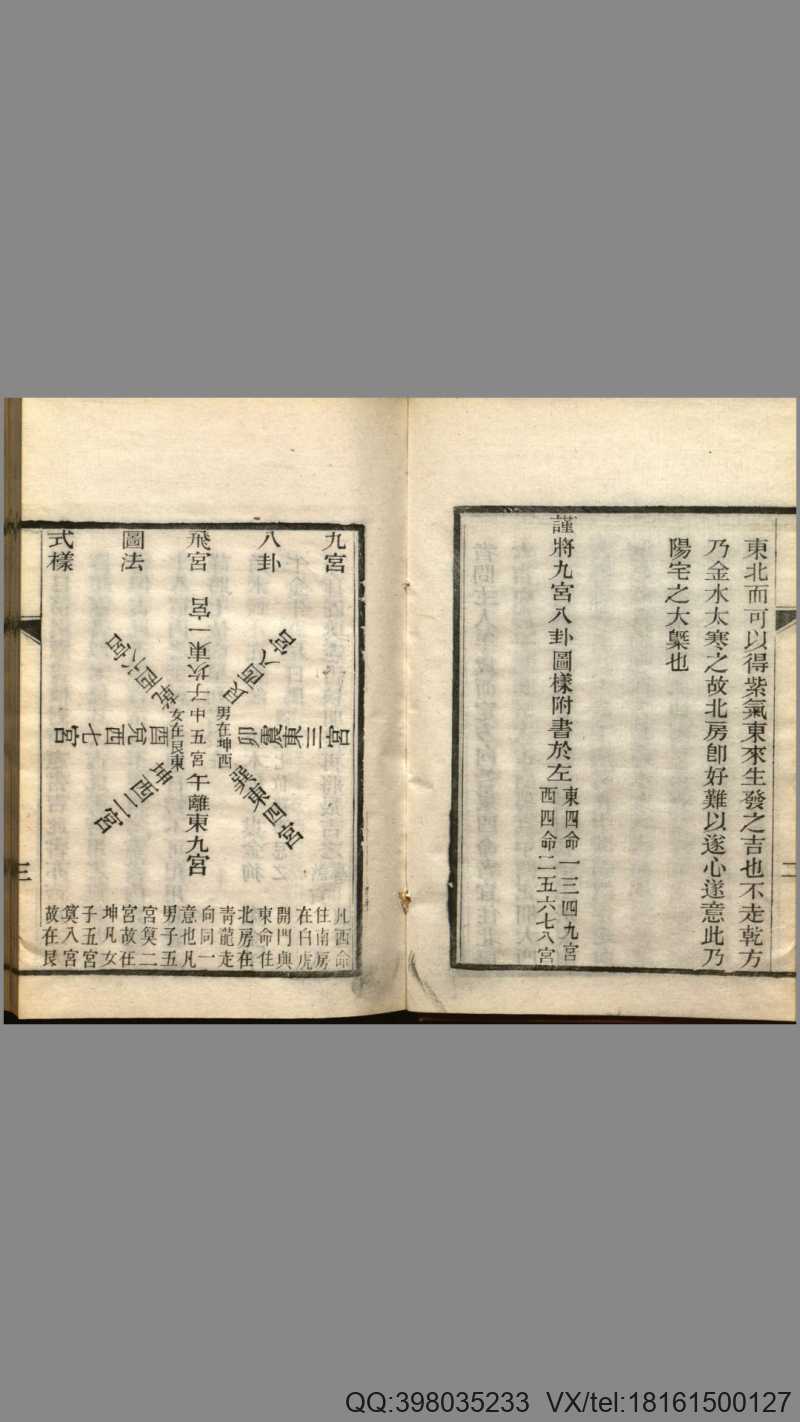 東北而可以得紫氣東來生發之吉也不走乾方
乃金水太寒之故北房卽好難以遂心遂意此乃
陽宅之大槩也
謹將九宮八卦圖樣附書於左
東四命一三四九宮
西四命二五六七八宮
二
九宮
八卦
飛宮
圖法
式樣
子坎東一宮
艮西八宮
卯震東三宮
巽東四宮
午離東九宮
坤西二宮
酉兌西七宮
乾西六宮
男在坤西
中五宮
女在艮東
凡西命
住南房
在白虎
開門與
東命住
北房在
靑龍走
向同一
意也凡
男子五
宮奠二
宮故在
坤凡女
子五宮
奠八宮
故在艮
三
QQ:398035233 VX/tel:18161500127